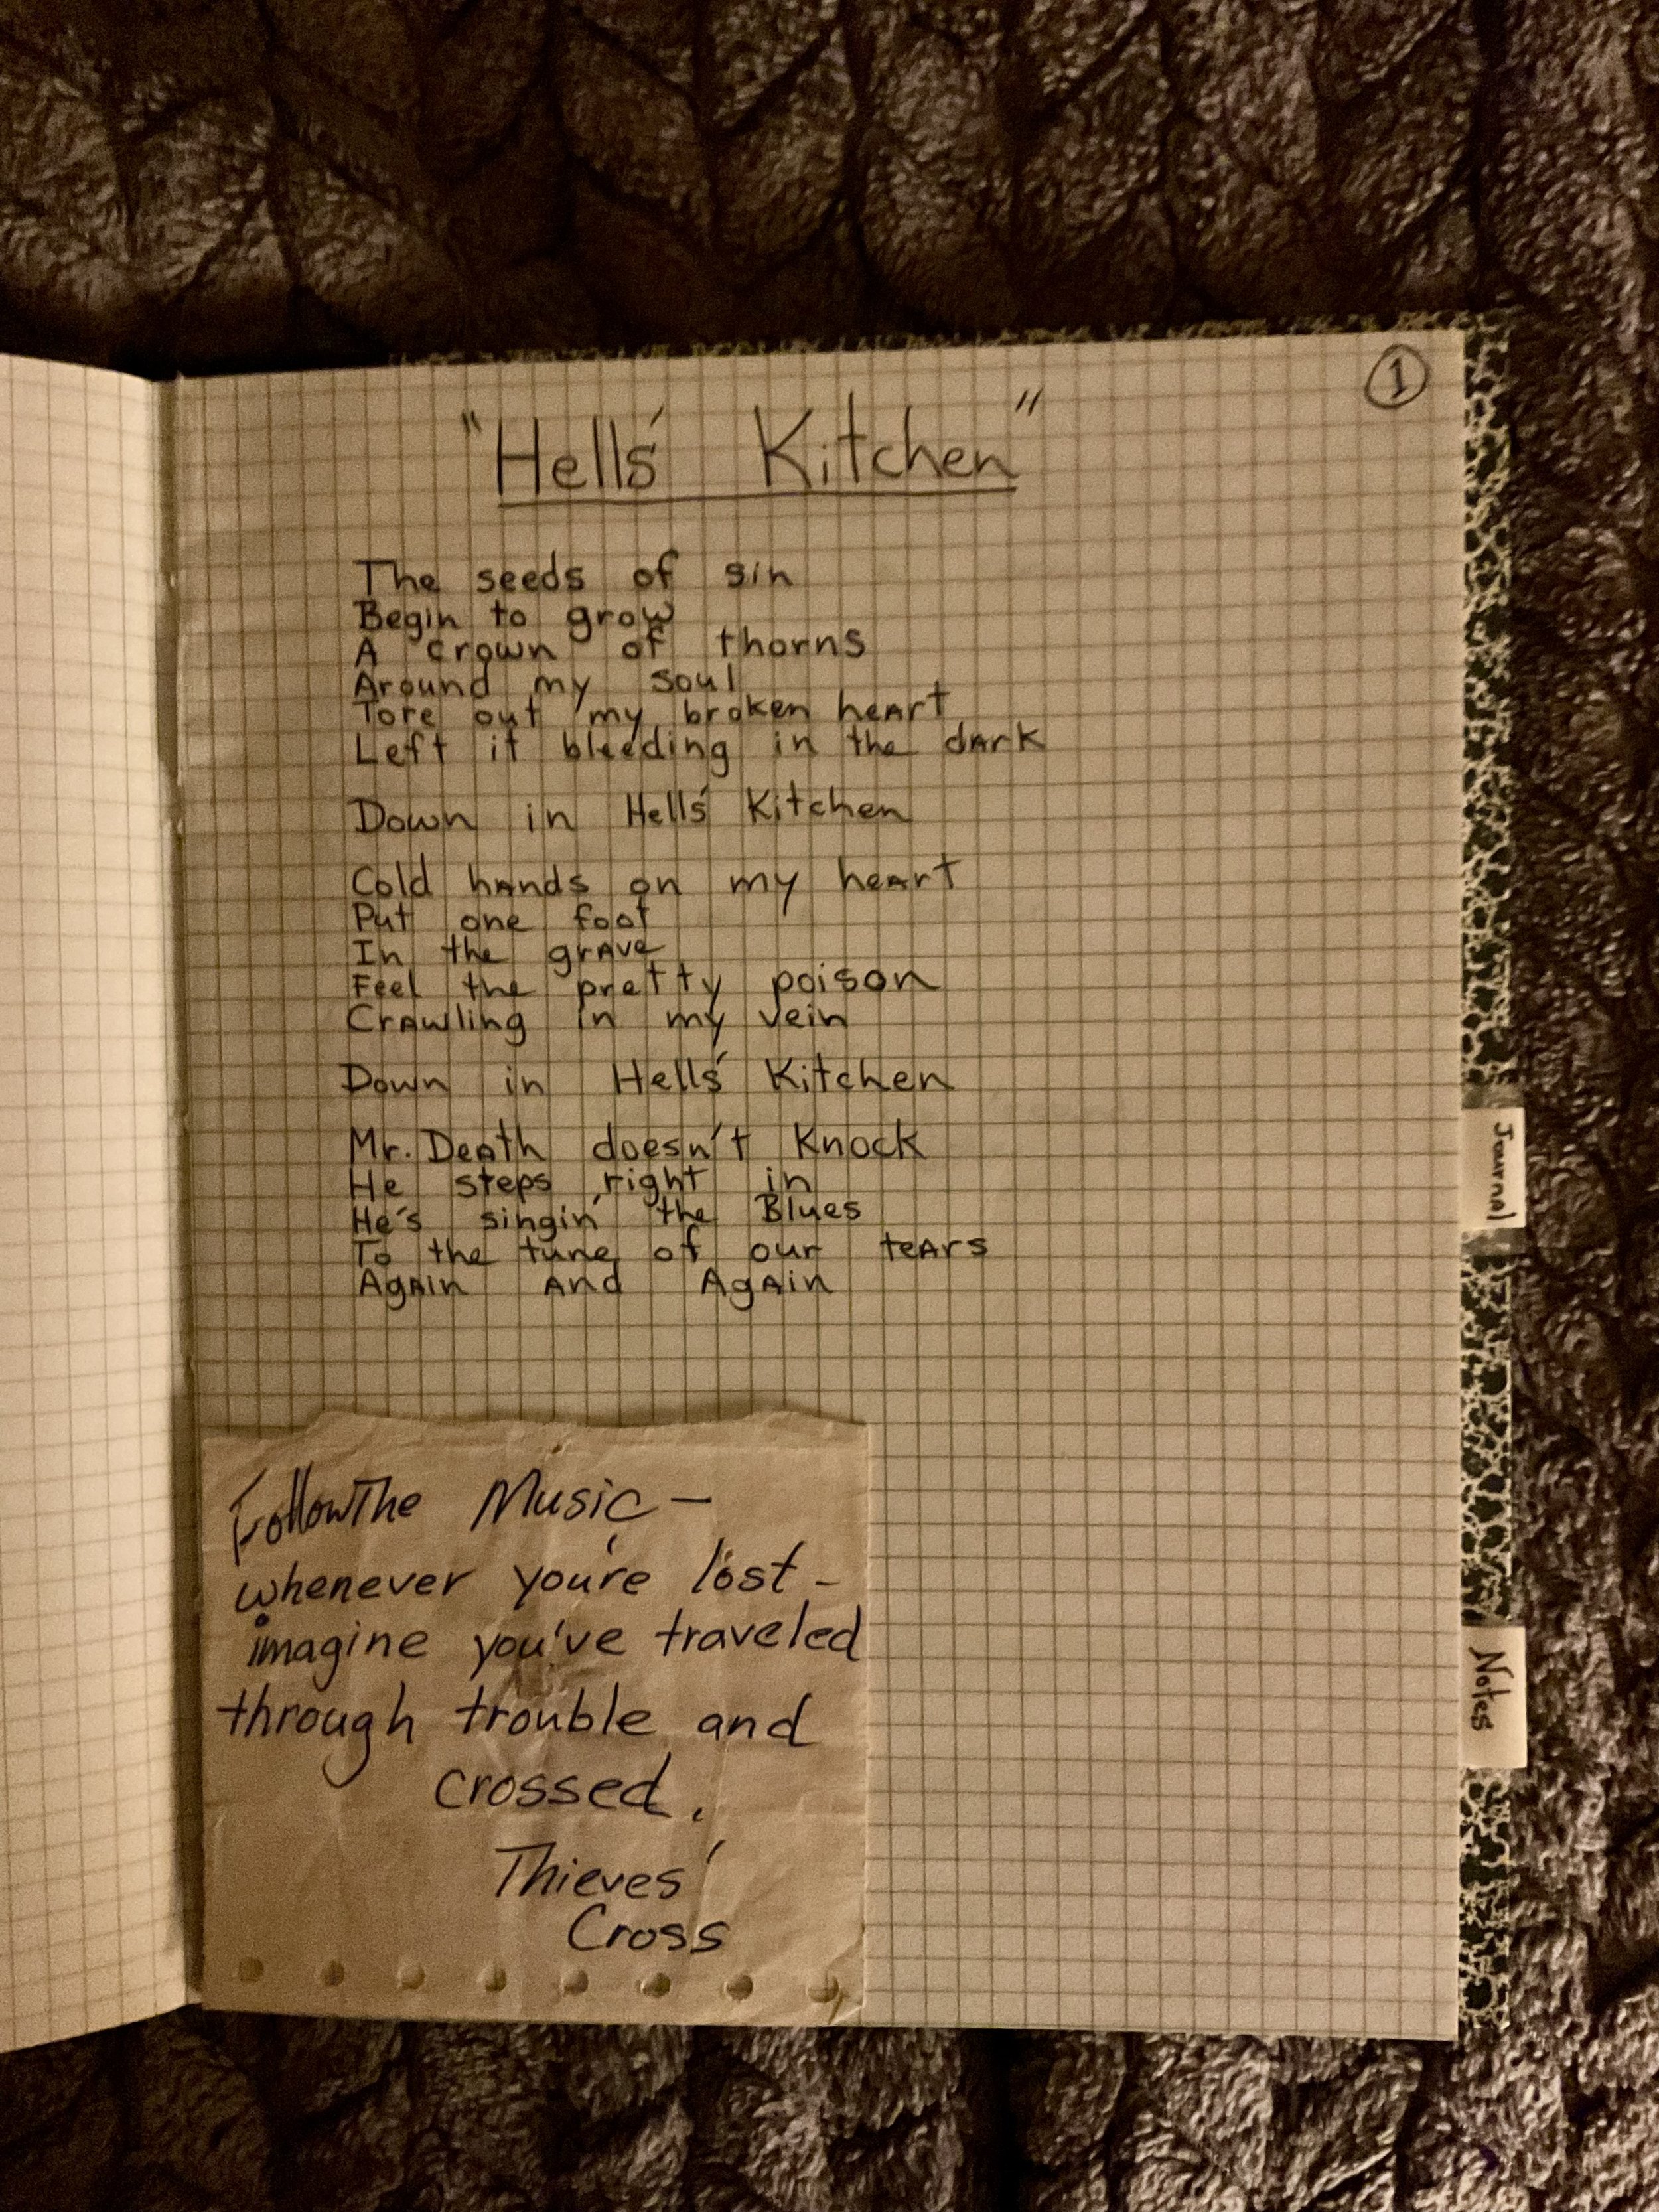 1
"Hells' Kitchen"
The seeds of sin
Begin to grow
A crown of thorns
Around my soul
Tore out my broken heart
Left it bleeding in the dark
Down in Hells' Kitchen
Cold hands on my heart
Put one foot
In the grave
Feel the pretty poison
Crawling in my vein
Down in Hells' Kitchen
Mr. Death doesn't knock
He steps right in
He's singin' the Blues
To the tune of our tears
Again and Again
Follow The Music —
whenever you're lost -
imagine you've traveled
through trouble and
crossed.
Thieves'
Cross
Journal
Notes